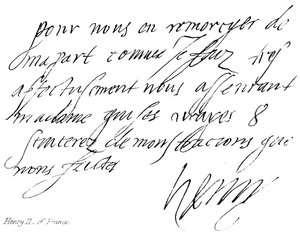 pour nous en remercyer de
ma part comme je faiz tres
affectusment nous assurant
madame que les vrayes &
sinceres demonstracions que
nous faites
henry
Henry II. of France